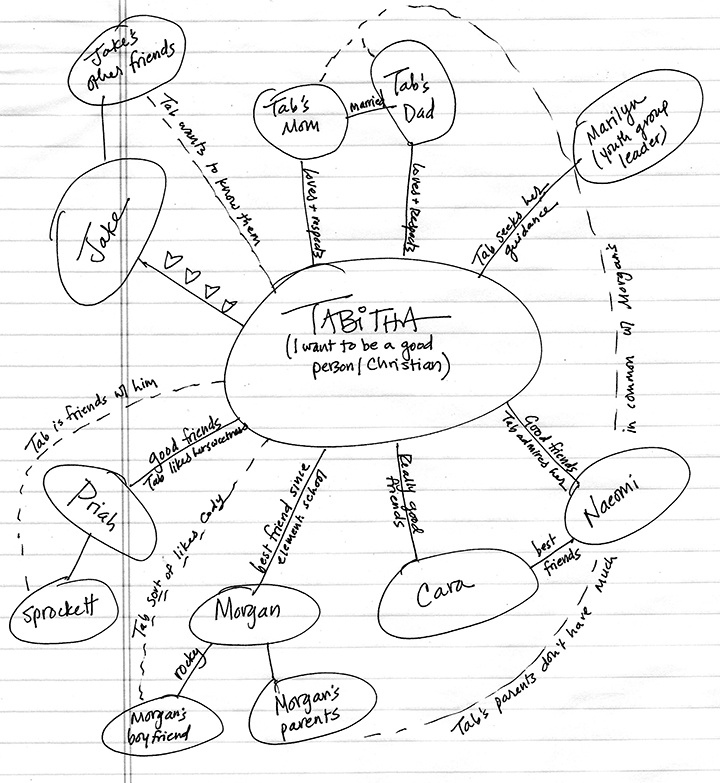 Jake's
other friends
Tab's
Mom
married
Tab's
Dad
Marilyn
(youth group
leader)
Tab wants to know them
loves + respects
loves + respects
Tab seeks her
guidance
Jake
TABITHA
(I want to be a good
person/Christian)
Tab is friends w/ him
good friends
Tab likes her sweetness
Priah
sprockett
Tab sort of likes Cody
best friend since
element. school
Really good
friends
Good friends
Tab admires her
Naeomi
best
friends
Cara
Morgan
rocky
Morgan's
boyfriend
Morgan's
parents
Tab's parents don't have much
in common w/ Morgan's